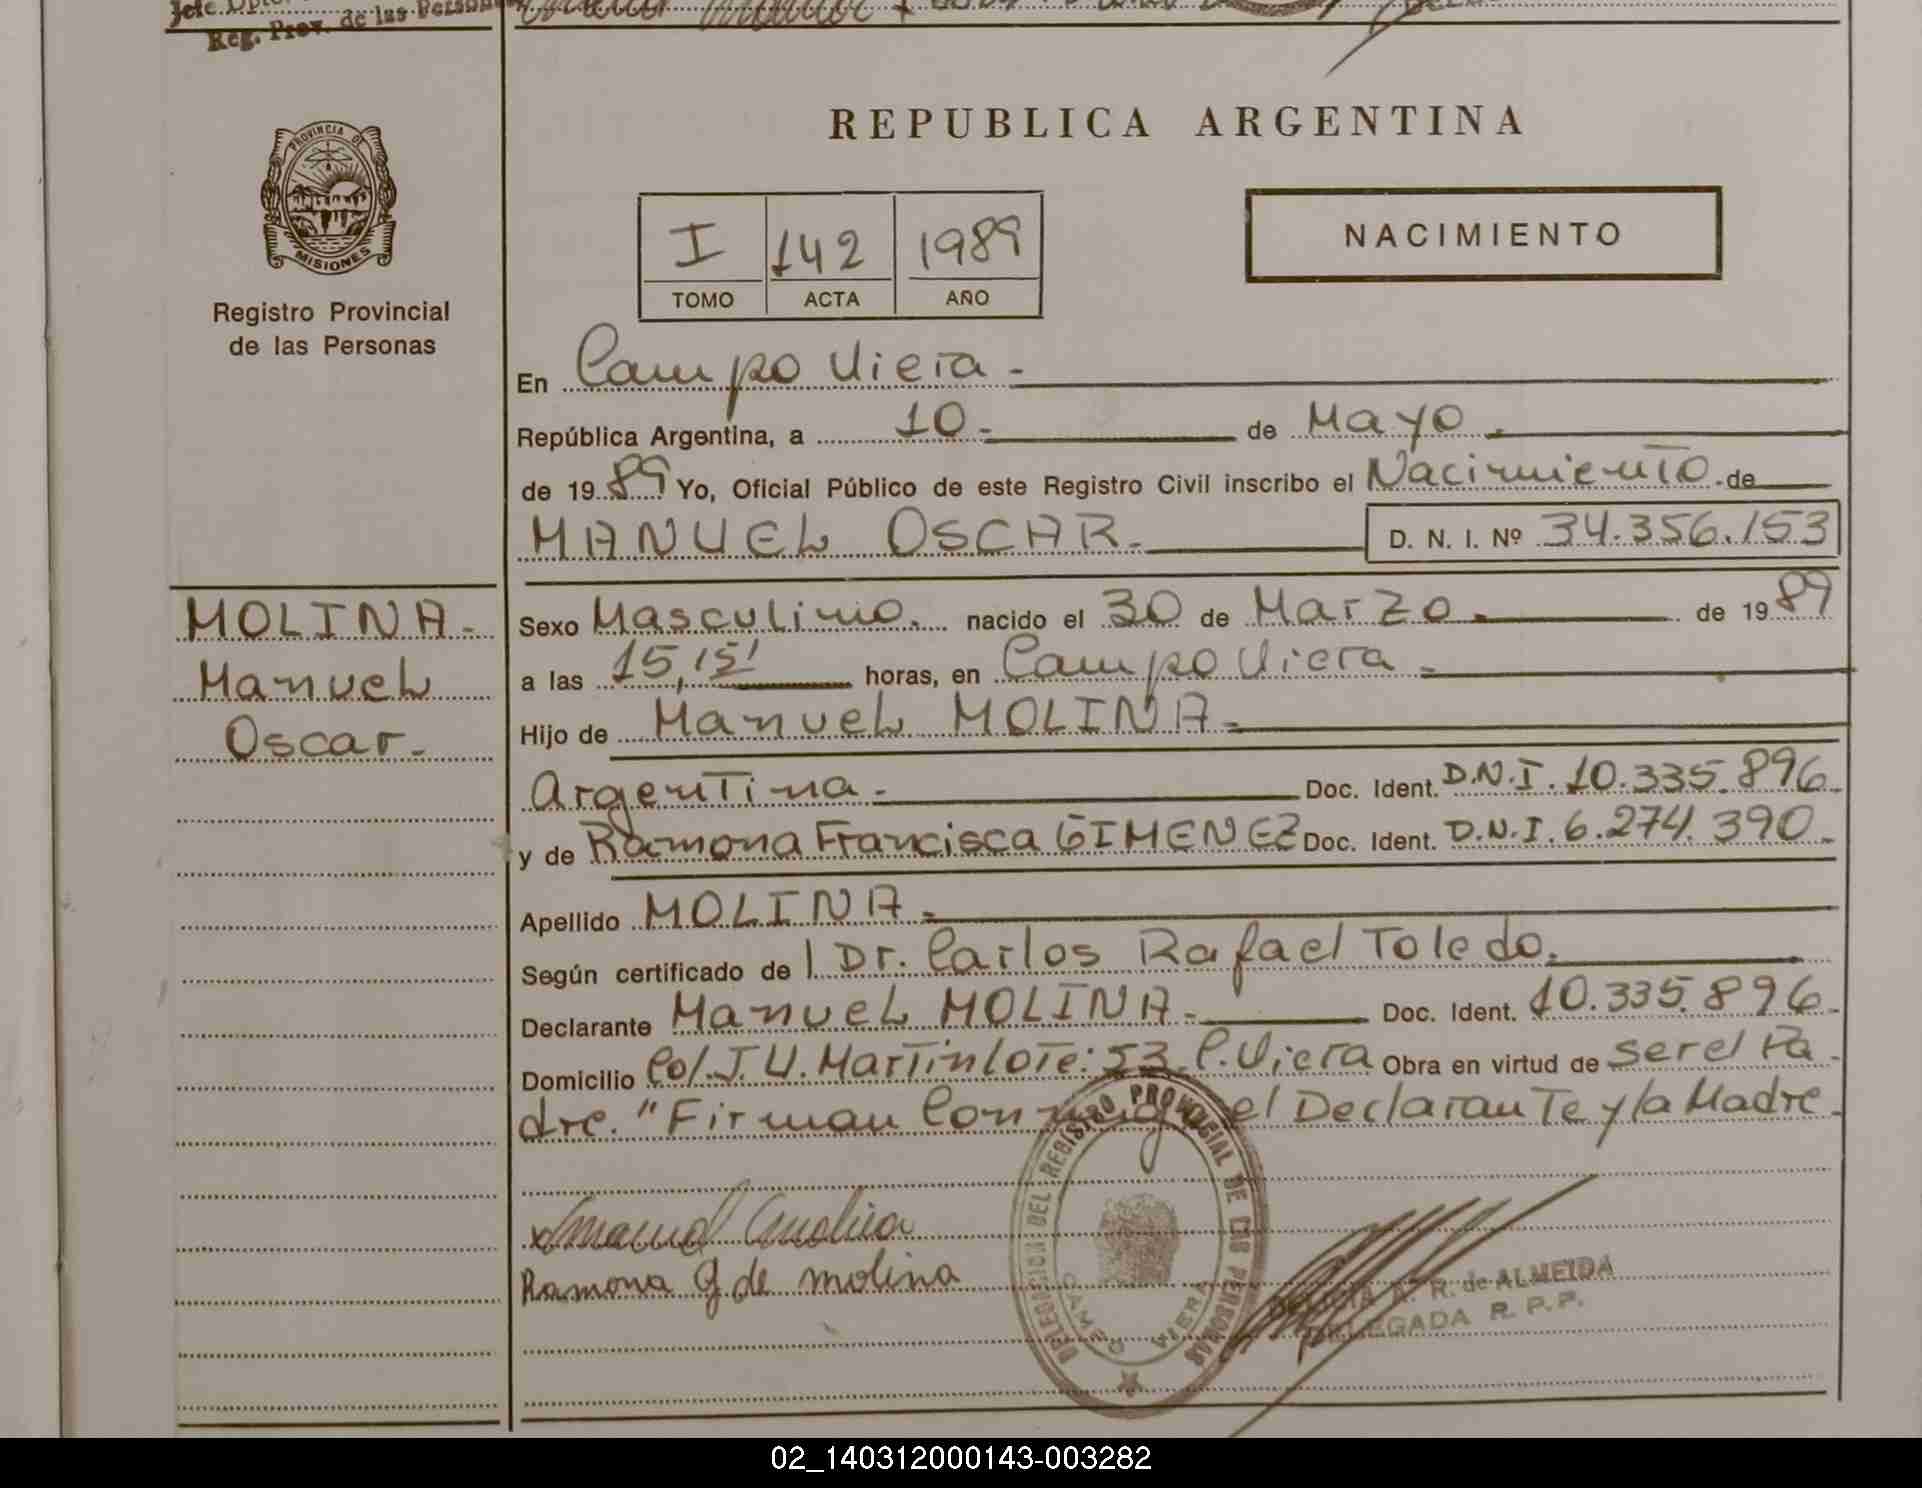 Jefe Dpto.
Reg. Prov. de las Personas
PROVINCIA DE
MISIONES
Registro Provincial
de las Personas
REPUBLICA ARGENTINA
I 142 1989
TOMO ACTA AÑO
NACIMIENTO
En Campo Viera -
República Argentina, a 10 - de Mayo
de 1989 Yo, Oficial Público de este Registro Civil inscribo el Nacimiento de
MANUEL OSCAR - D. N. I. Nº 34.356.153
MOLINA -
Manuel
Oscar -
Sexo Masculino. nacido el 30 de Marzo de 1989
a las 15,15' horas, en Campo Viera -
Hijo de Manuel MOLINA -
Argentina - Doc. Ident. D.N.I. 10.335.896
y de Ramona Francisca GIMENEZ Doc. Ident. D.N.I. 6.274.390 -
Apellido MOLINA -
Según certificado de Dr. Carlos Rafael Toledo.
Declarante Manuel MOLINA - Doc. Ident. 10.335.896
Domicilio Col. J.V. Martin Lote: 53 C. Viera Obra en virtud de ser el Pa
dre. "Firman Conmigo el Declarante y la Madre
Manuel Molina
Ramona G de molina
DELEGACION DEL REGISTRO PROVINCIAL DE LAS PERSONAS
CAMPO VIERA
A. R. de ALMEIDA
DELEGADA R. P. P.
02_140312000143-003282